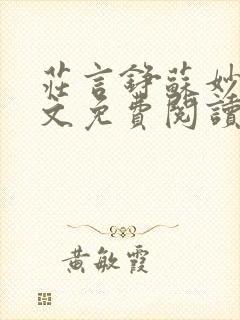 莊言錚蘇妙
文免費閱讀
黃敏霞